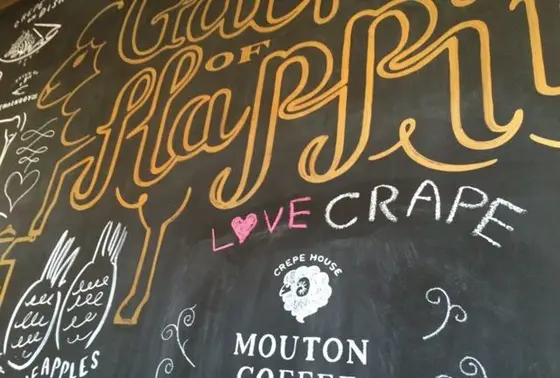 OF
Happi
LOVE CRAPE
CREPE HOUSE
MOUTON
COFFEE
EAPPLES